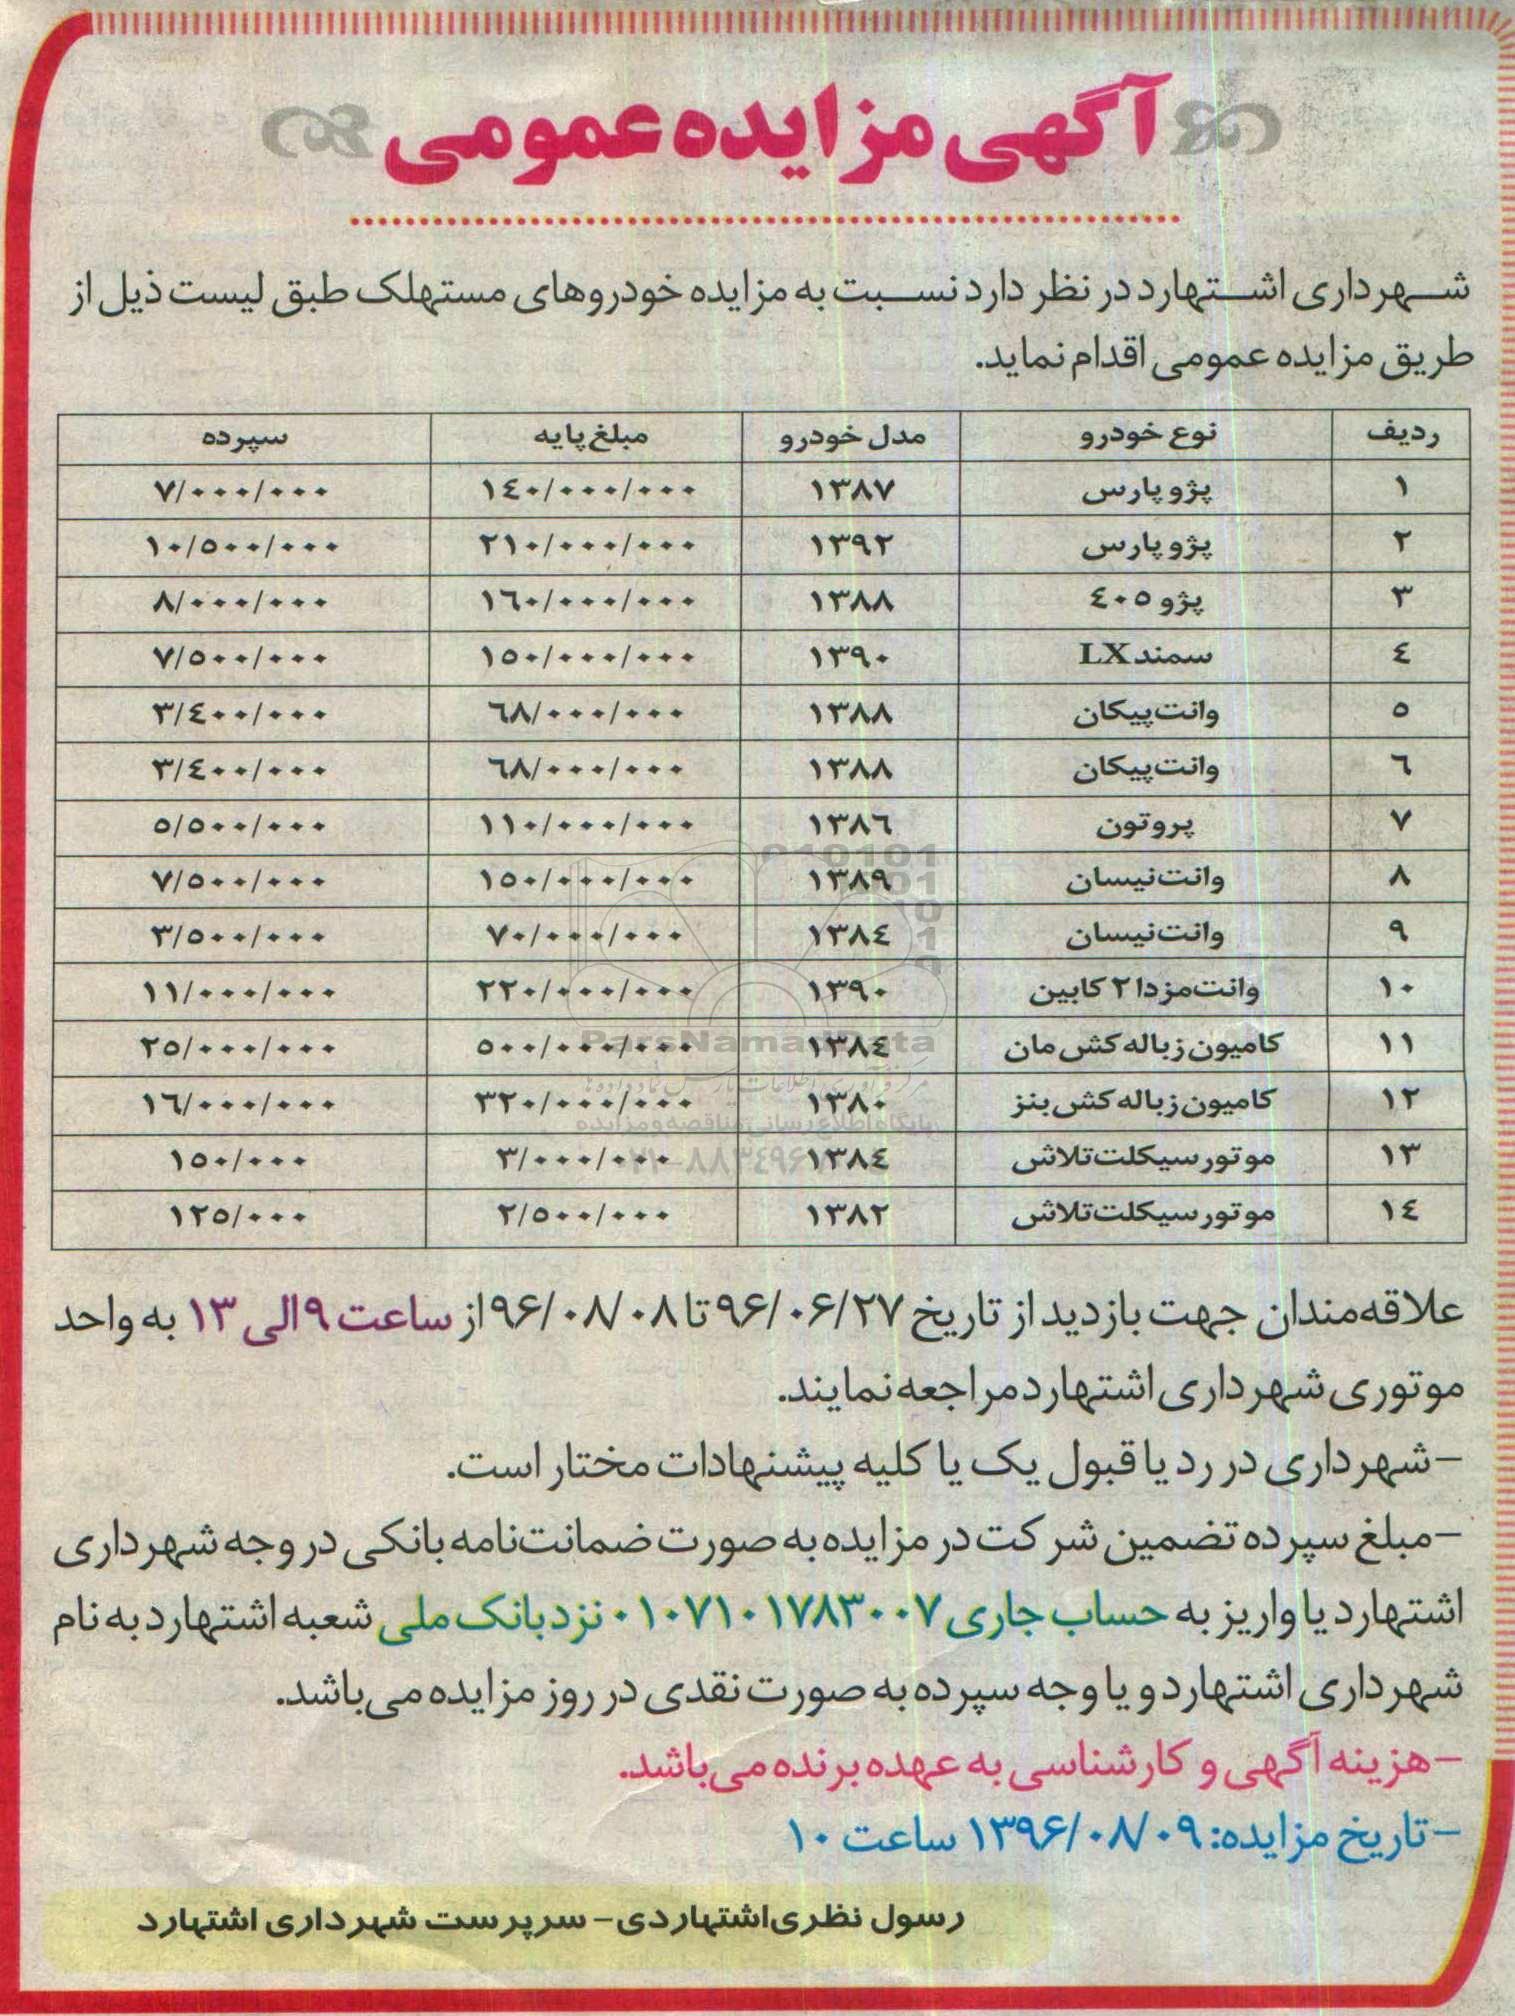 آگهی مزایده عمومی
شهرداری اشتهارد در نظر دارد نسبت به مزایده خودروهای مستهلک طبق لیست ذیل از
طریق مزایده عمومی اقدام نماید.
ردیف نوع خودرو مدل خودرو مبلغ پایه سپرده
۱ پژو پارس ۱۳۸۷ ۱٤۰/۰۰۰/۰۰۰ ۷/۰۰۰/۰۰۰
۲ پژو پارس ۱۳۹۲ ۲۱۰/۰۰۰/۰۰۰ ۱۰/٥۰۰/۰۰۰
۳ پژو ٤۰٥ ۱۳۸۸ ۱٦۰/۰۰۰/۰۰۰ ۸/۰۰۰/۰۰۰
٤ سمند LX ۱۳۹۰ ۱٥۰/۰۰۰/۰۰۰ ۷/٥۰۰/۰۰۰
٥ وانت پیکان ۱۳۸۸ ٦۸/۰۰۰/۰۰۰ ۳/٤۰۰/۰۰۰
٦ وانت پیکان ۱۳۸۸ ٦۸/۰۰۰/۰۰۰ ۳/٤۰۰/۰۰۰
۷ پروتون ۱۳۸٦ ۱۱۰/۰۰۰/۰۰۰ ٥/٥۰۰/۰۰۰
۸ وانت نیسان ۱۳۸۹ ۱٥۰/۰۰۰/۰۰۰ ۷/٥۰۰/۰۰۰
۹ وانت نیسان ۱۳۸٤ ۷۰/۰۰۰/۰۰۰ ۳/٥۰۰/۰۰۰
۱۰ وانت مزدا ۲ کابین ۱۳۹۰ ۲۲۰/۰۰۰/۰۰۰ ۱۱/۰۰۰/۰۰۰
۱۱ کامیون زباله کش مان ۱۳۸٤ ٥۰۰/۰۰۰/۰۰۰ ۲٥/۰۰۰/۰۰۰
۱۲ کامیون زباله کش بنز ۱۳۸۰ ۳۲۰/۰۰۰/۰۰۰ ۱٦/۰۰۰/۰۰۰
۱۳ موتور سیکلت تلاش ۱۳۸٤ ۳/۰۰۰/۰۰۰ ۱٥۰/۰۰۰
۱٤ موتور سیکلت تلاش ۱۳۸۲ ۲/٥۰۰/۰۰۰ ۱۲٥/۰۰۰
ParsNamadData
مرکز فرآوری اطلاعات پارس نماد داده ها
پایگاه اطلاع رسانی مناقصه و مزایده
علاقه‌مندان جهت بازدید از تاریخ ۹۶/۰۶/۲۷ تا ۹۶/۰۸/۰۸ از ساعت ۹ الی ۱۳ به واحد
موتوری شهرداری اشتهارد مراجعه نمایند.
-شهرداری در رد یا قبول یک یا کلیه پیشنهادات مختار است.
-مبلغ سپرده تضمین شرکت در مزایده به صورت ضمانت‌نامه بانکی در وجه شهرداری
اشتهارد یا واریز به حساب جاری ۰۱۰۷۱۰۱۷۸۳۰۰۷ نزد بانک ملی شعبه اشتهارد به نام
شهرداری اشتهارد و یا وجه سپرده به صورت نقدی در روز مزایده می‌باشد.
-هزینه آگهی و کارشناسی به عهده برنده می‌باشد.
-تاریخ مزایده: ۱۳۹۶/۰۸/۰۹ ساعت ۱۰
رسول نظری‌اشتهاردی- سرپرست شهرداری اشتهارد